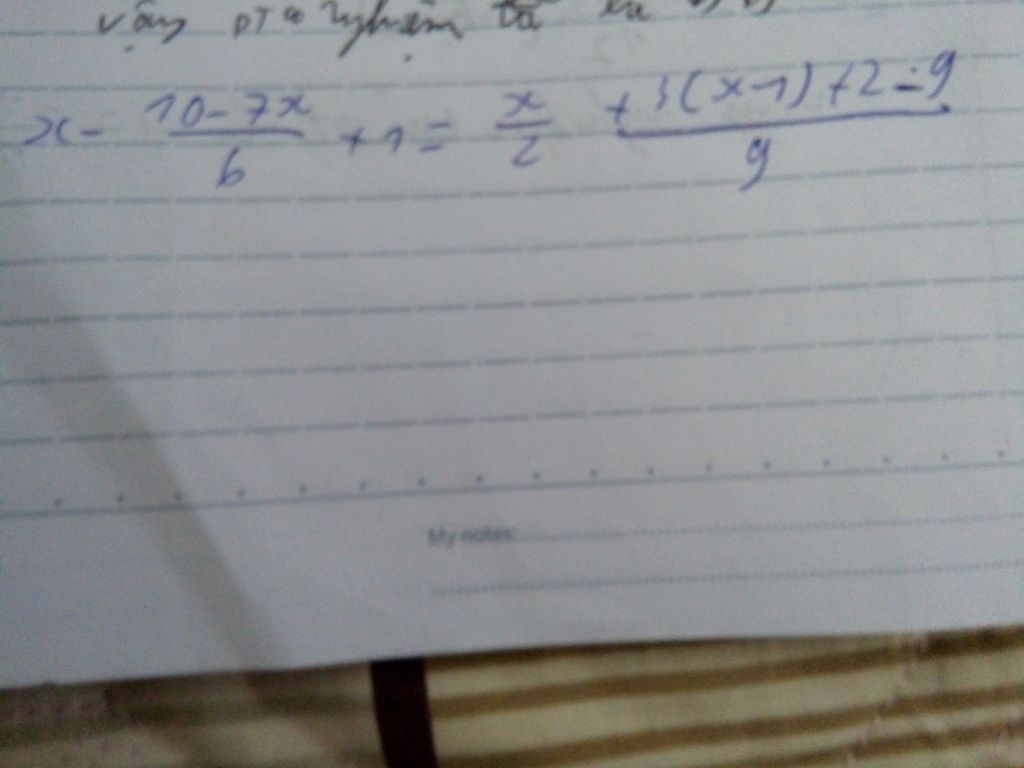 vậy pt có nghiệm
x - \frac{10-7x}{6} + 1 = \frac{x}{2} \frac{+3(x-1)+2-9}{9}
My notes: